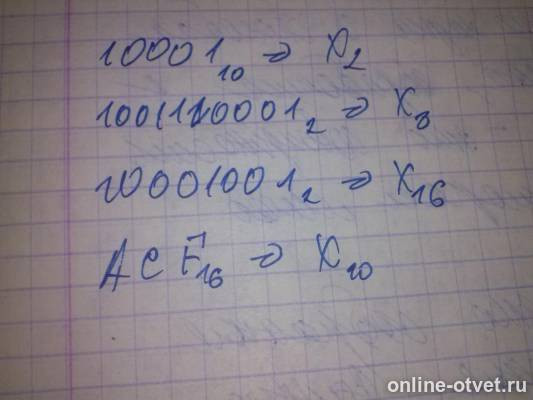 10001₁₀ → X₂
1001110001₂ → X₈
10001001₂ → X₁₆
ACF₁₆ → X₁₀
online-otvet.ru